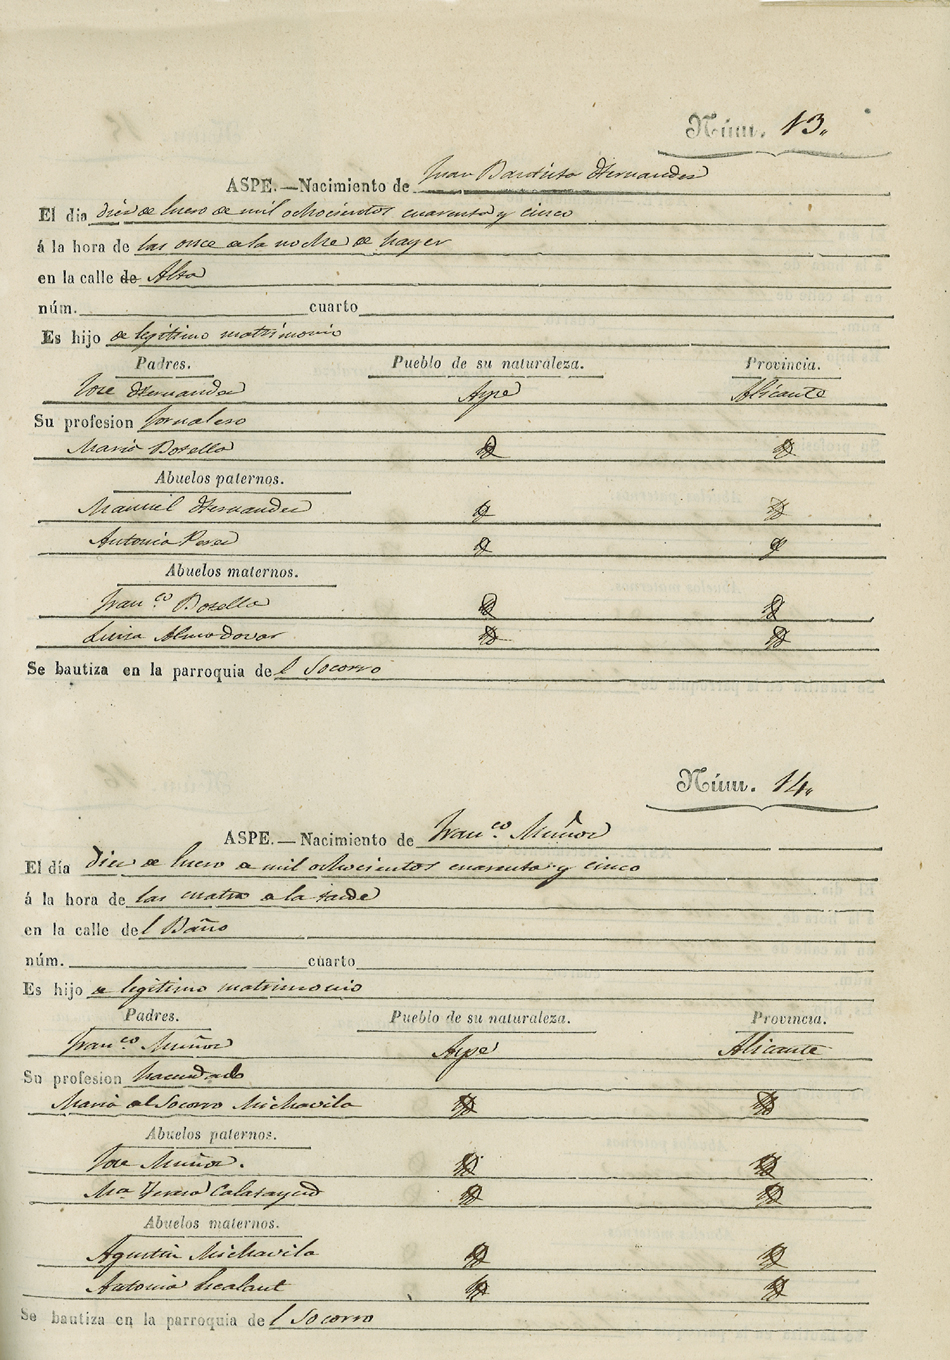 Núm. 13.
ASPE.—Nacimiento de Juan Bautista Hernandez
El dia diez de Enero de mil ochocientos cuarenta y cinco
á la hora de las once de la noche de hayer
en la calle de Alta
núm. cuarto
Es hijo de legitimo matrimonio
Padres. Pueblo de su naturaleza. Provincia.
Jose Hernandez Aspe Alicante
Su profesion Jornalero
Maria Botella
Abuelos paternos.
Manuel Hernandez
Antonia Perez
Abuelos maternos.
Fran.co Botella
Luisa Almodovar
Se bautiza en la parroquia del Socorro
Núm. 14.
ASPE.—Nacimiento de Fran.co Muñoz
El día diez de Enero de mil ochocientos cuarenta y cinco
á la hora de las cuatro de la tarde
en la calle del Baño
núm. cuarto
Es hijo de legitimo matrimonio
Padres. Pueblo de su naturaleza. Provincia.
Fran.co Muñoz Aspe Alicante
Su profesion hacendado
Maria del Socorro Michavila
Abuelos paternos.
Jose Muñoz.
Ma Teresa Calatayud
Abuelos maternos.
Agustin Michavila
Antonia
Se bautiza en la parroquia del Socorro